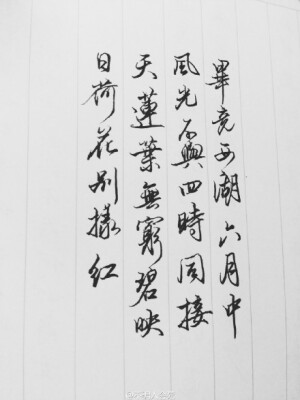 畢竟西湖六月中
風光不與四時同接
天蓮葉無窮碧映
日荷花别樣紅